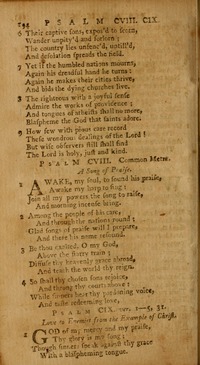 194 PSALM CVIII. CIX.
6 Their captive sons, expos'd to scorn,
Wander unpity'd and forlorn;
The country lies unfenc'd, untill'd,
And desolation spreads the field.
7 Yet if the humbled nations mourns,
Again his dreadful hand he turns;
Again he makes their cities thrive,
And bids the dying churches live.
8 The righteous with a joyful sense
Admire the works of providence;
And tongues of atheists shall no more,
Blaspheme the God that saints adore.
9 How few with pious care record
These wondrous dealings of the Lord!
But wise observers still shall find
The Lord is holy, just and kind.
PSALM CVIII. Common Metre.
A Song of Praise.
AWAKE, my soul, to sound his praise,
Awake my harp to sing;
Join all my powers the song to raise,
And morning incense bring.
2 Among the people of his care,
And through the nations round;
Glad songs of praise will I prepare,
And there his name resound.
3 Be thou exalted, O my God,
Above the starry train;
Diffuse thy heavenly grace abroad,
And teach the world thy reign.
4 So shall thy chosen sons rejoice,
And throng thy courts above;
While sinners hear thy pardoning voice,
And taste redeeming love.
PSALM CIX. ver. 1-5, 31.
Love to Enemies from the Example of Christ.
GOD of my mercy and my praise,
Thy glory is my song;
Though sinners speak against thy grace
With a blaspheming tongue.